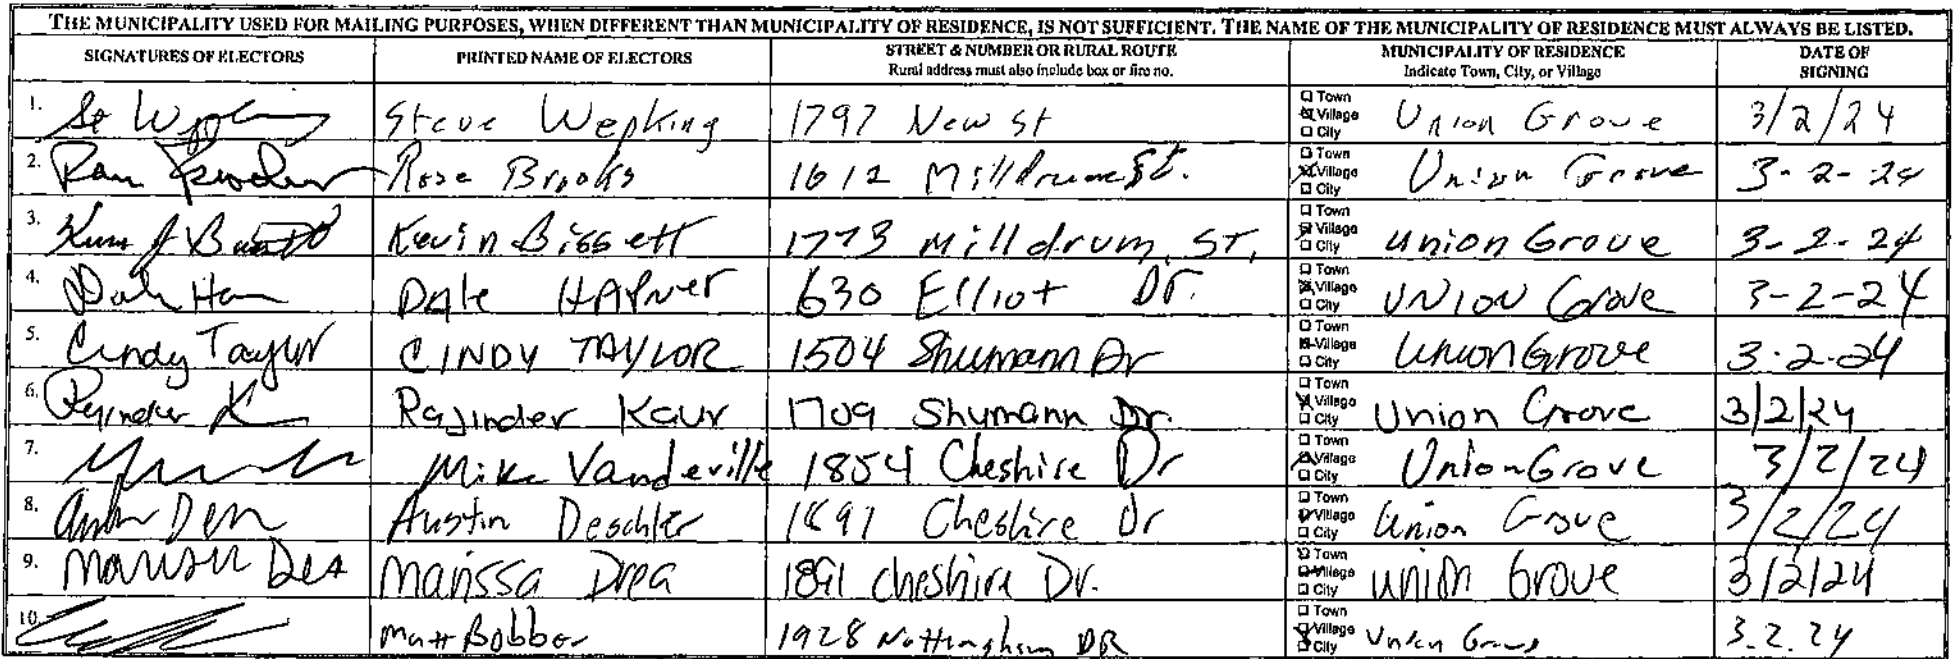 THE MUNICIPALITY USED FOR MAILING PURPOSES, WHEN DIFFERENT THAN MUNICIPALITY OF RESIDENCE, IS NOT SUFFICIENT. THE NAME OF THE MUNICIPALITY OF RESIDENCE MUST ALWAYS BE LISTED.
SIGNATURES OF ELECTORS PRINTED NAME OF ELECTORS STREET & NUMBER OR RURAL ROUTE MUNICIPALITY OF RESIDENCE DATE OF
Rural address must also include box or fire no. Indicate Town, City, or Village SIGNING
1. Steve Wepking 1797 New St Town Village City Union Grove 3/2/24
2. Rose Brooks 1612 Milldrum St. Town Village City Union Grove 3-2-24
3. Kevin Bissett 1773 Milldrum ST. Town Village City Union Grove 3-2-24
4. DAle HAfner 630 Elliot Dr. Town Village City UNION Grove 3-2-24
5. Cindy Taylor CINDY TAYLOR 1504 Shumann Dr Town Village City Union Grove 3-2-24
6. Rajinder K Rajinder Kaur 1709 Shumann Dr. Town Village City Union Grove 3/2/24
7. Mike Vandeville 1854 Cheshire Dr Town Village City Union Grove 3/2/24
8. Austin Deschler 1891 Cheshire Dr Town Village City Union Grove 3/2/24
9. Marissa Drea 1891 Cheshire Dr. Town Village City Union Grove 3/2/24
10. Matt Bobber 1928 Nottingham DR Town Village City Union Grove 3.2.24